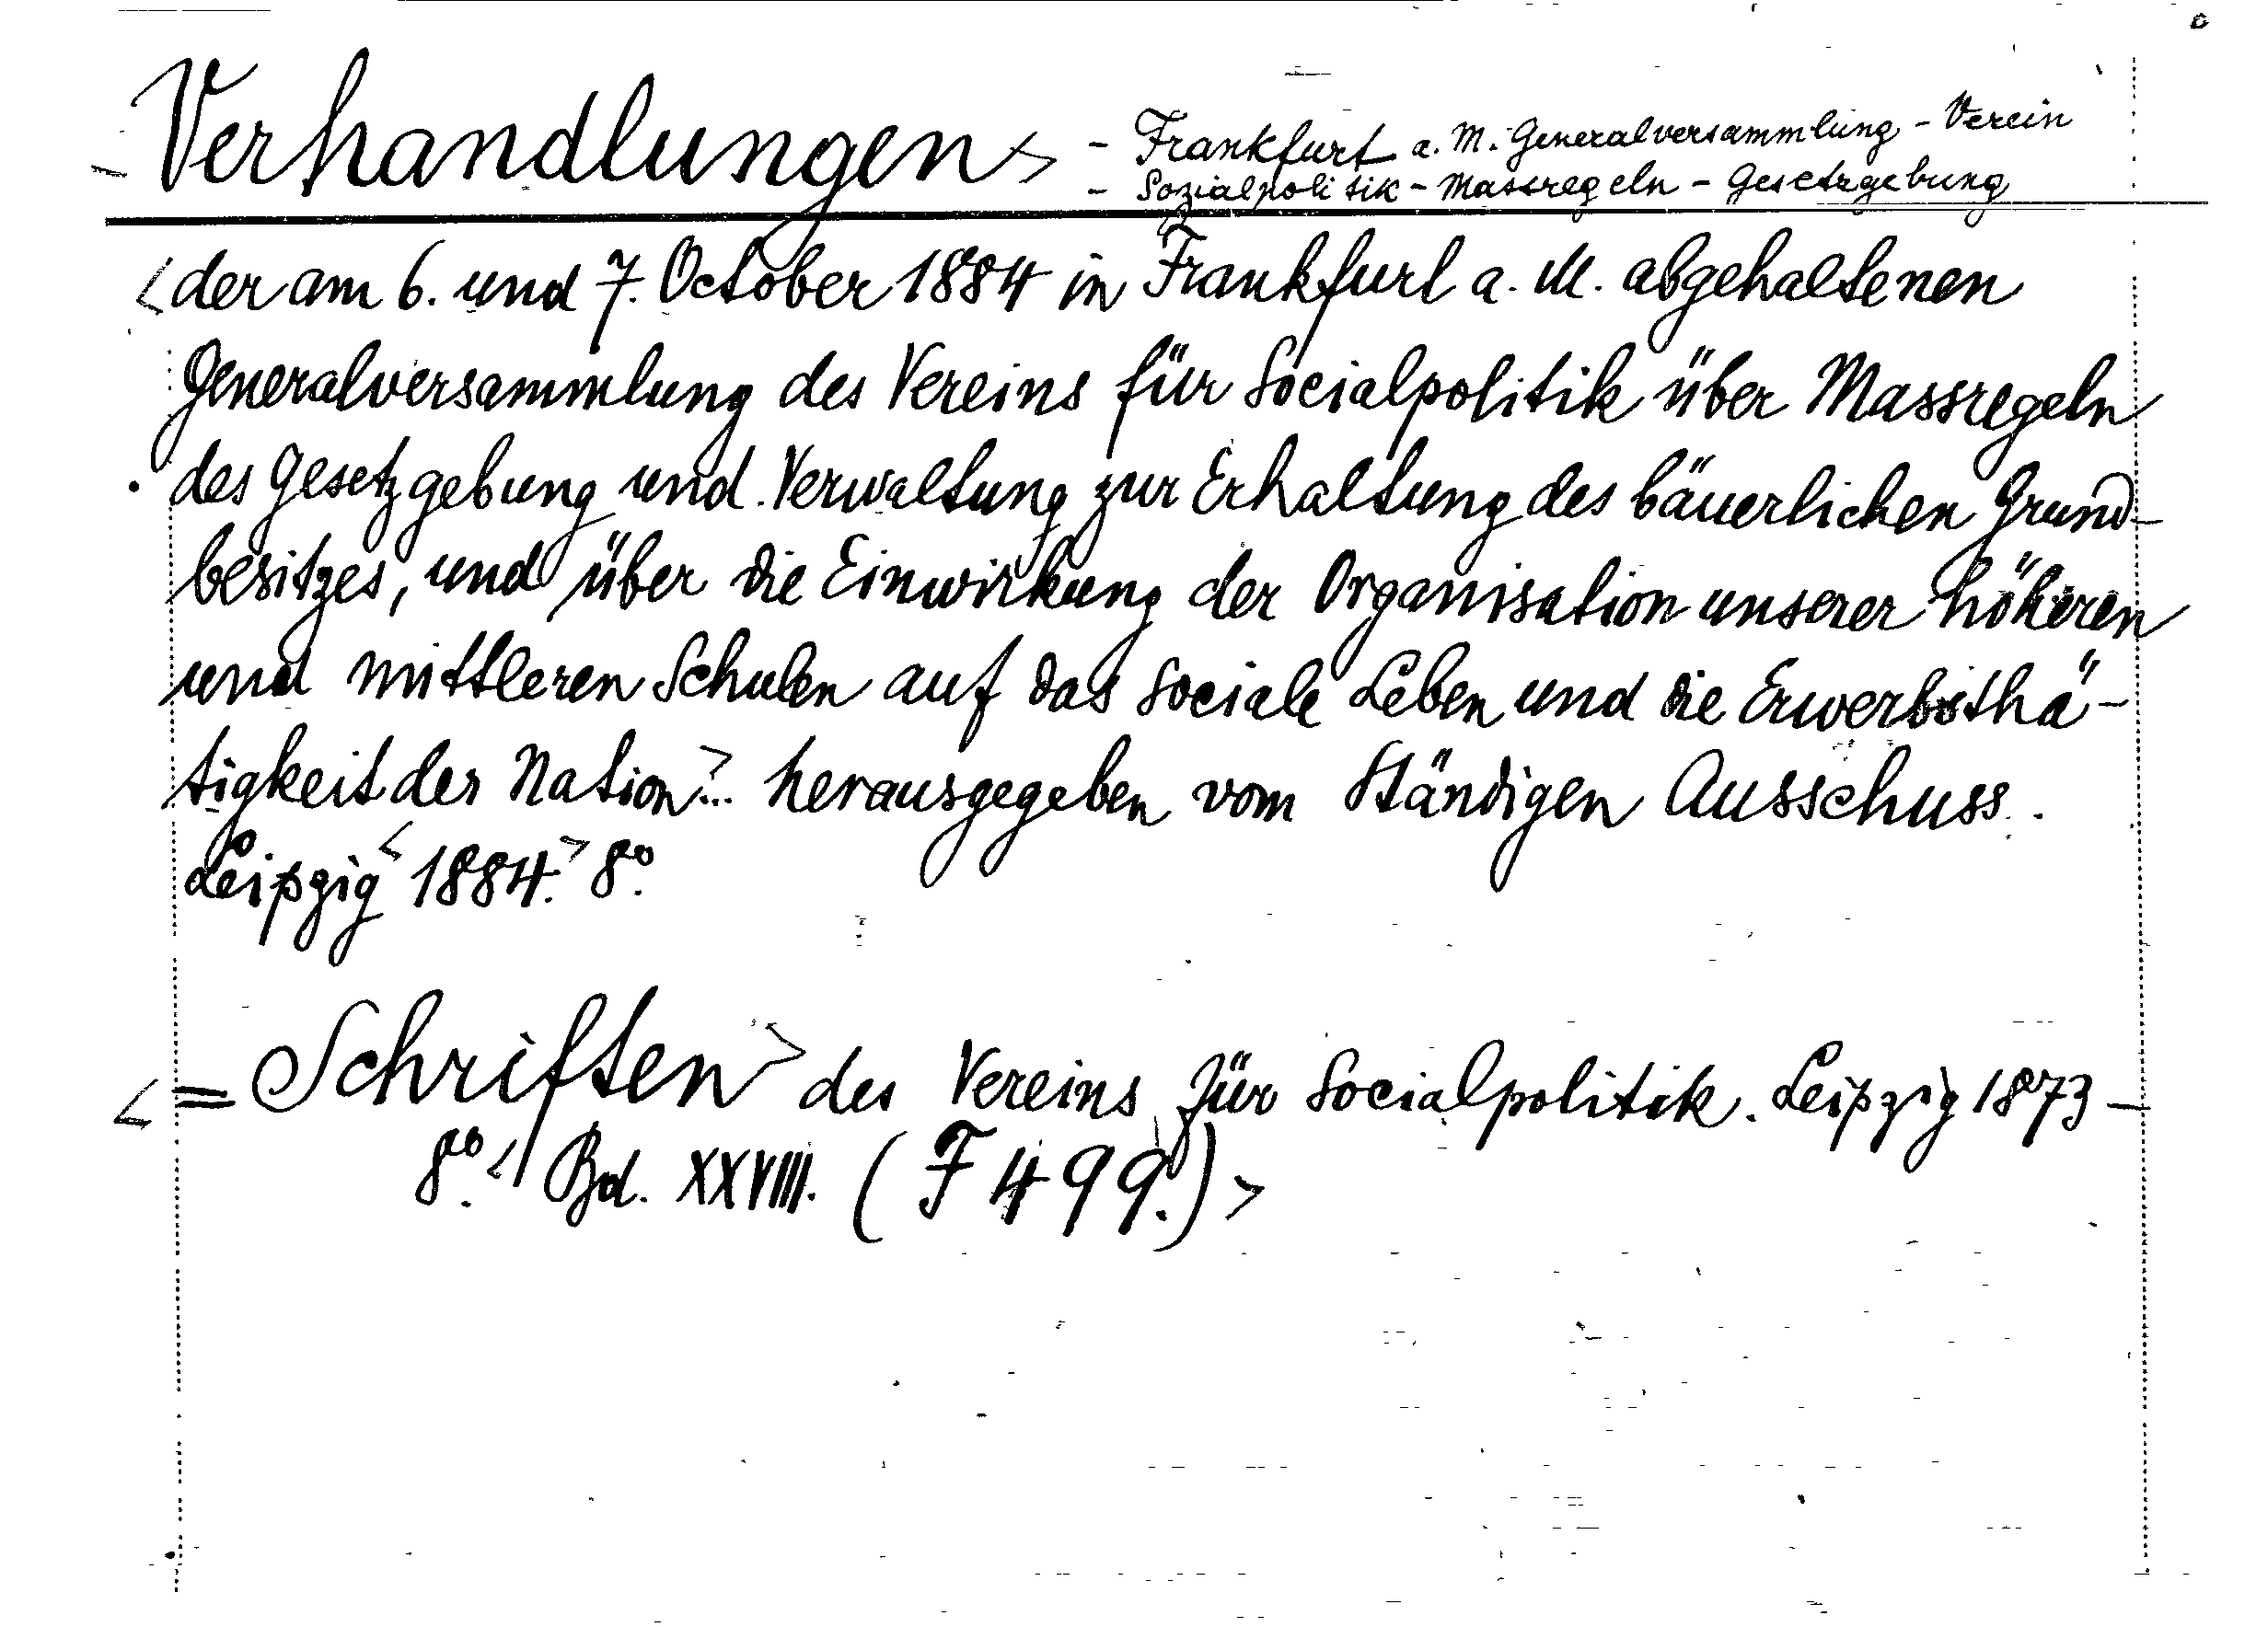 Verhandlungen> - Frankfurt a. M. Generalversammlung - Verein
- Sozialpolitik - Massregeln - Gesetzgebung
<der am 6. und 7. October 1884 in Frankfurt a. M. abgehaltenen
Generalversammlung des Vereins für Socialpolitik über Massregeln
des Gesetzgebung und Verwaltung zur Erhaltung des bäuerlichen Grund-
besitzes, und über die Einwirkung der Organisation unserer höheren
und mittleren Schulen auf das sociale Leben und die Erwerbsthä-
tigkeit der Nation>... herausgegeben vom Ständigen Ausschuss.
Leipzig <1884.> 8°.
<= Schriften> des Vereins für Socialpolitik. Leipzig 1873 -
8°. < Bd. XXVIII. (F 499.)>